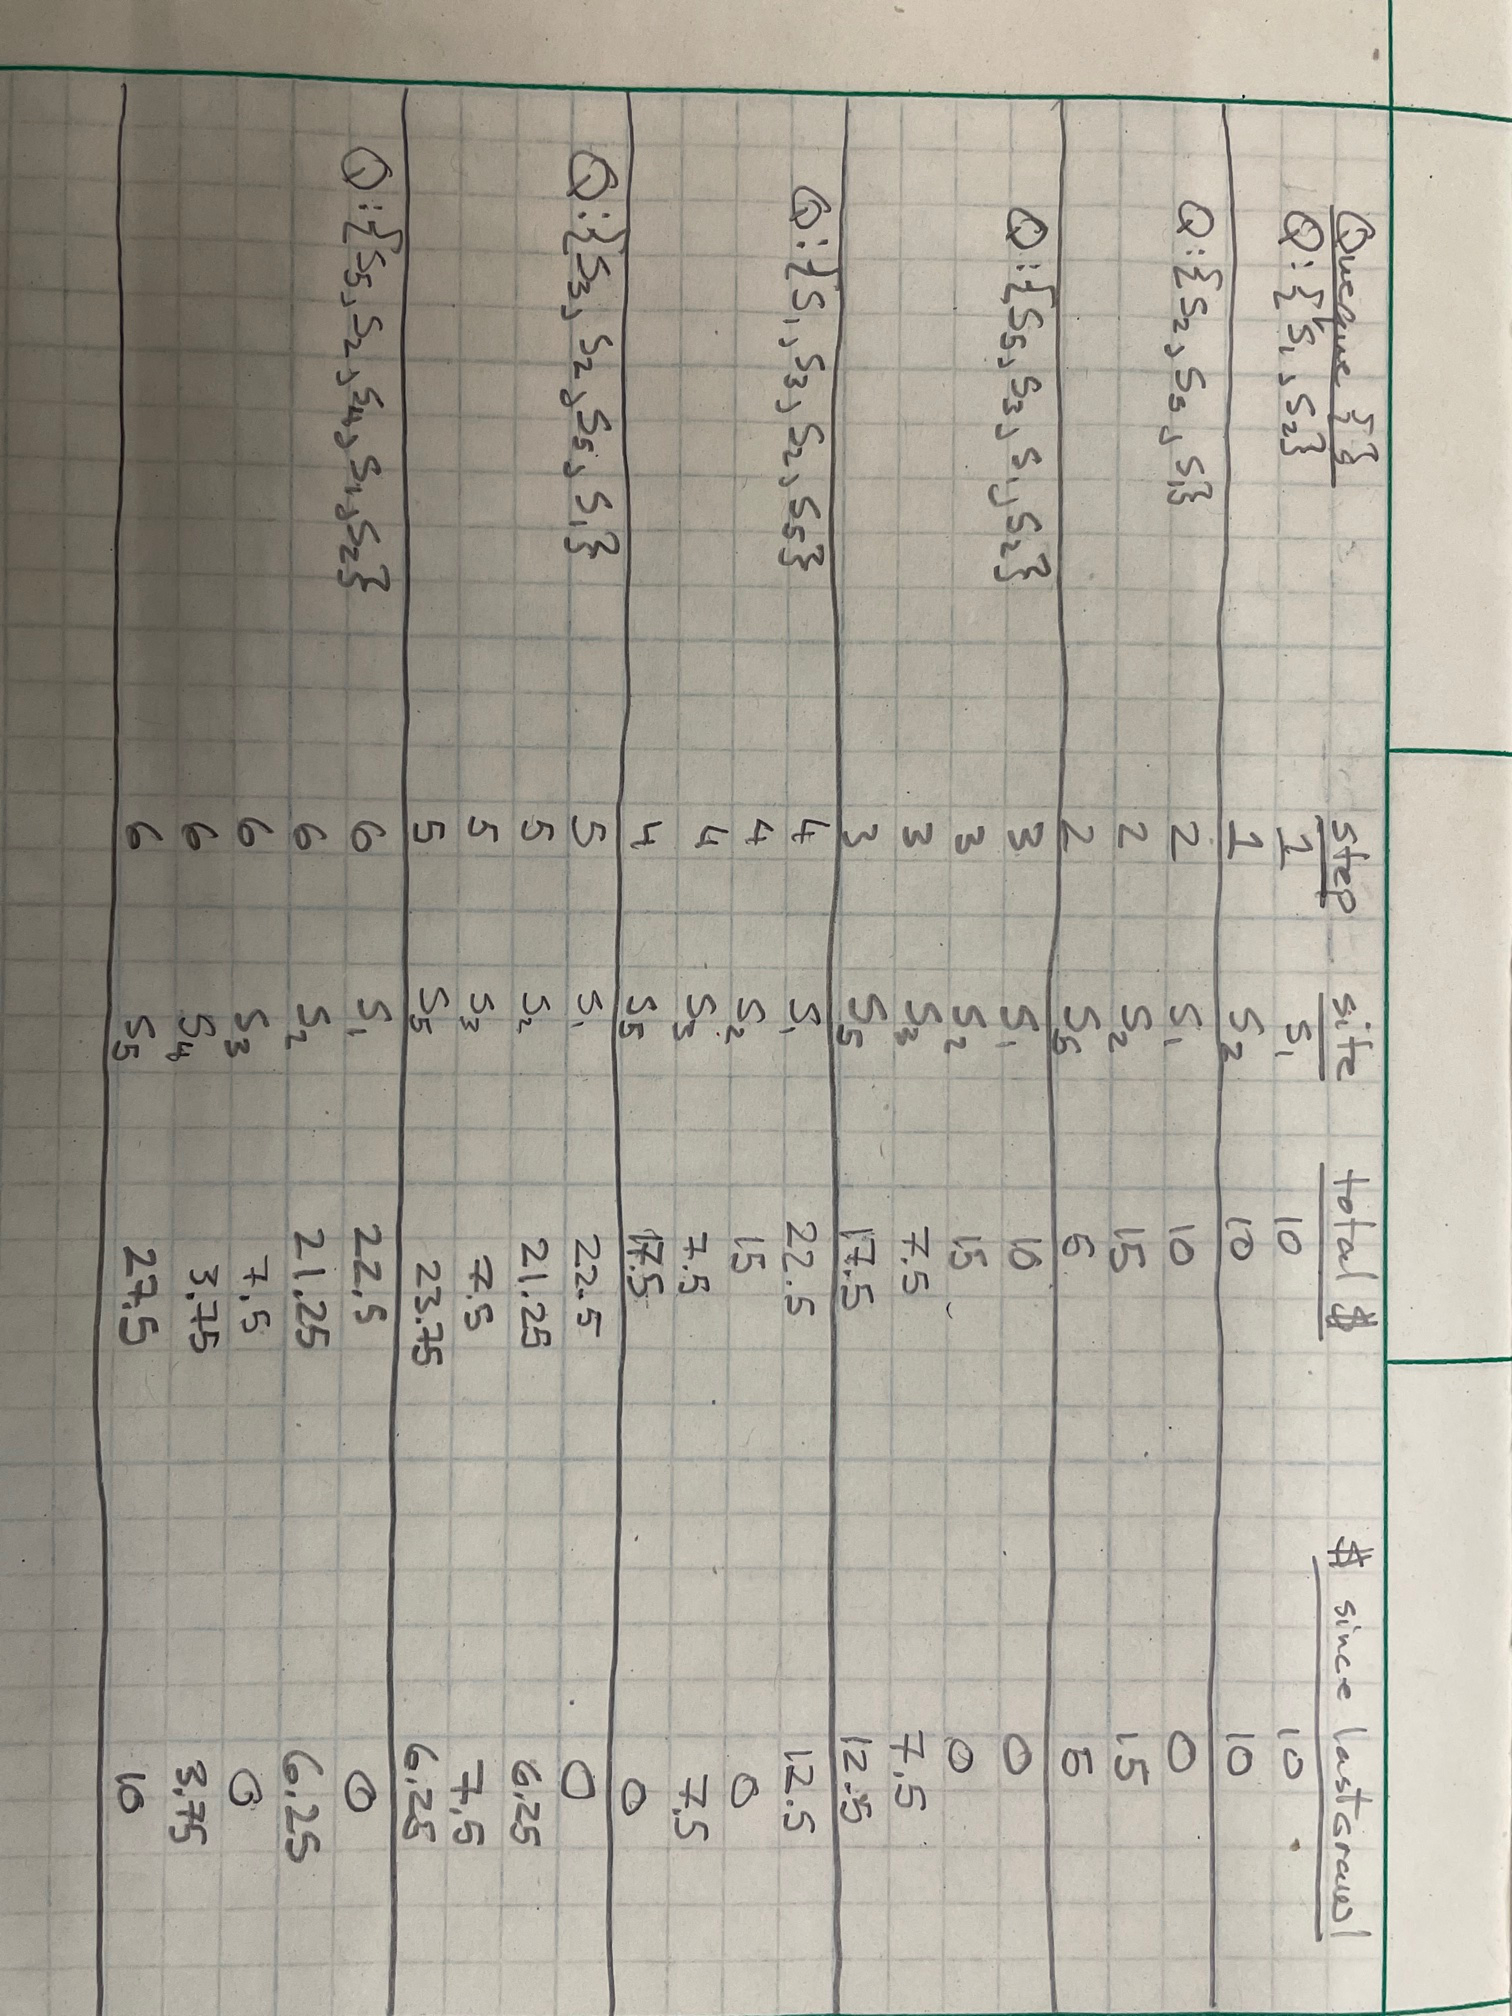 Queque {} Step Site total $ $ since last crawl
Q:{S1, S2} 1 S1 10 10
1 S2 10 10
Q:{S2, S5, S1} 2 S1 10 0
2 S2 15 15
2 S5 5 5
Q:{S5, S3, S1, S2} 3 S1 10 0
3 S2 15 0
3 S3 7.5 7.5
3 S5 17.5 12.5
Q:{S1, S3, S2, S5} 4 S1 22.5 12.5
4 S2 15 0
4 S3 7.5 7.5
4 S5 17.5 0
Q:{S3, S2, S5, S1} 5 S1 22.5 0
5 S2 21.25 6.25
5 S3 7.5 7.5
5 S5 23.75 6.25
Q:{S5, S2, S4, S1, S2} 6 S1 22.5 0
6 S2 21.25 6.25
6 S3 7.5 0
6 S4 3.75 3.75
6 S5 27.5 10